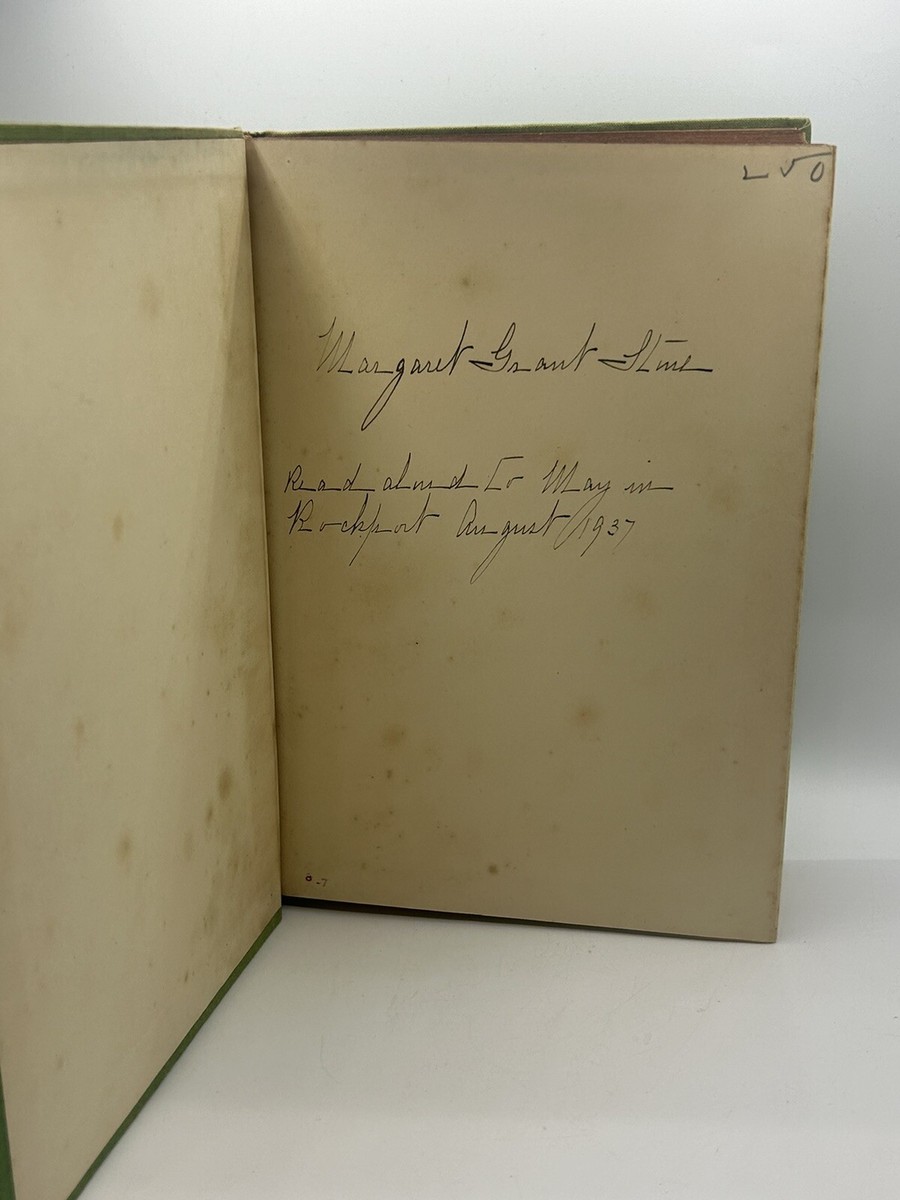 Margaret Grant Stone
Read aloud to May in
Rockport August 1937